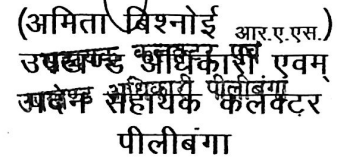 (अमिता बिश्नोई आर.ए.एस.)
उपखण्ड कलक्टर एवं
उपखण्ड अधिकारी एवम्
उपखण्ड अधिकारी पीलीबंगा
पदेन सहायक कलेक्टर
पीलीबंगा